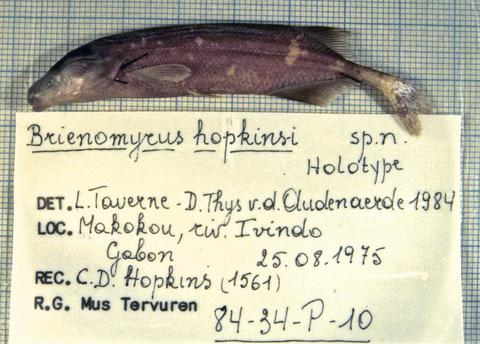 Brienomyrus hopkinsi sp.n.
Holotype
DET. L. Taverne - D. Thys v.d. Audenaerde 1984
LOC. Makokou, riv. Ivindo
Gabon 25.08.1975
REC. C.D. Hopkins (1561)
R.G. Mus Tervuren
84-34-P-10